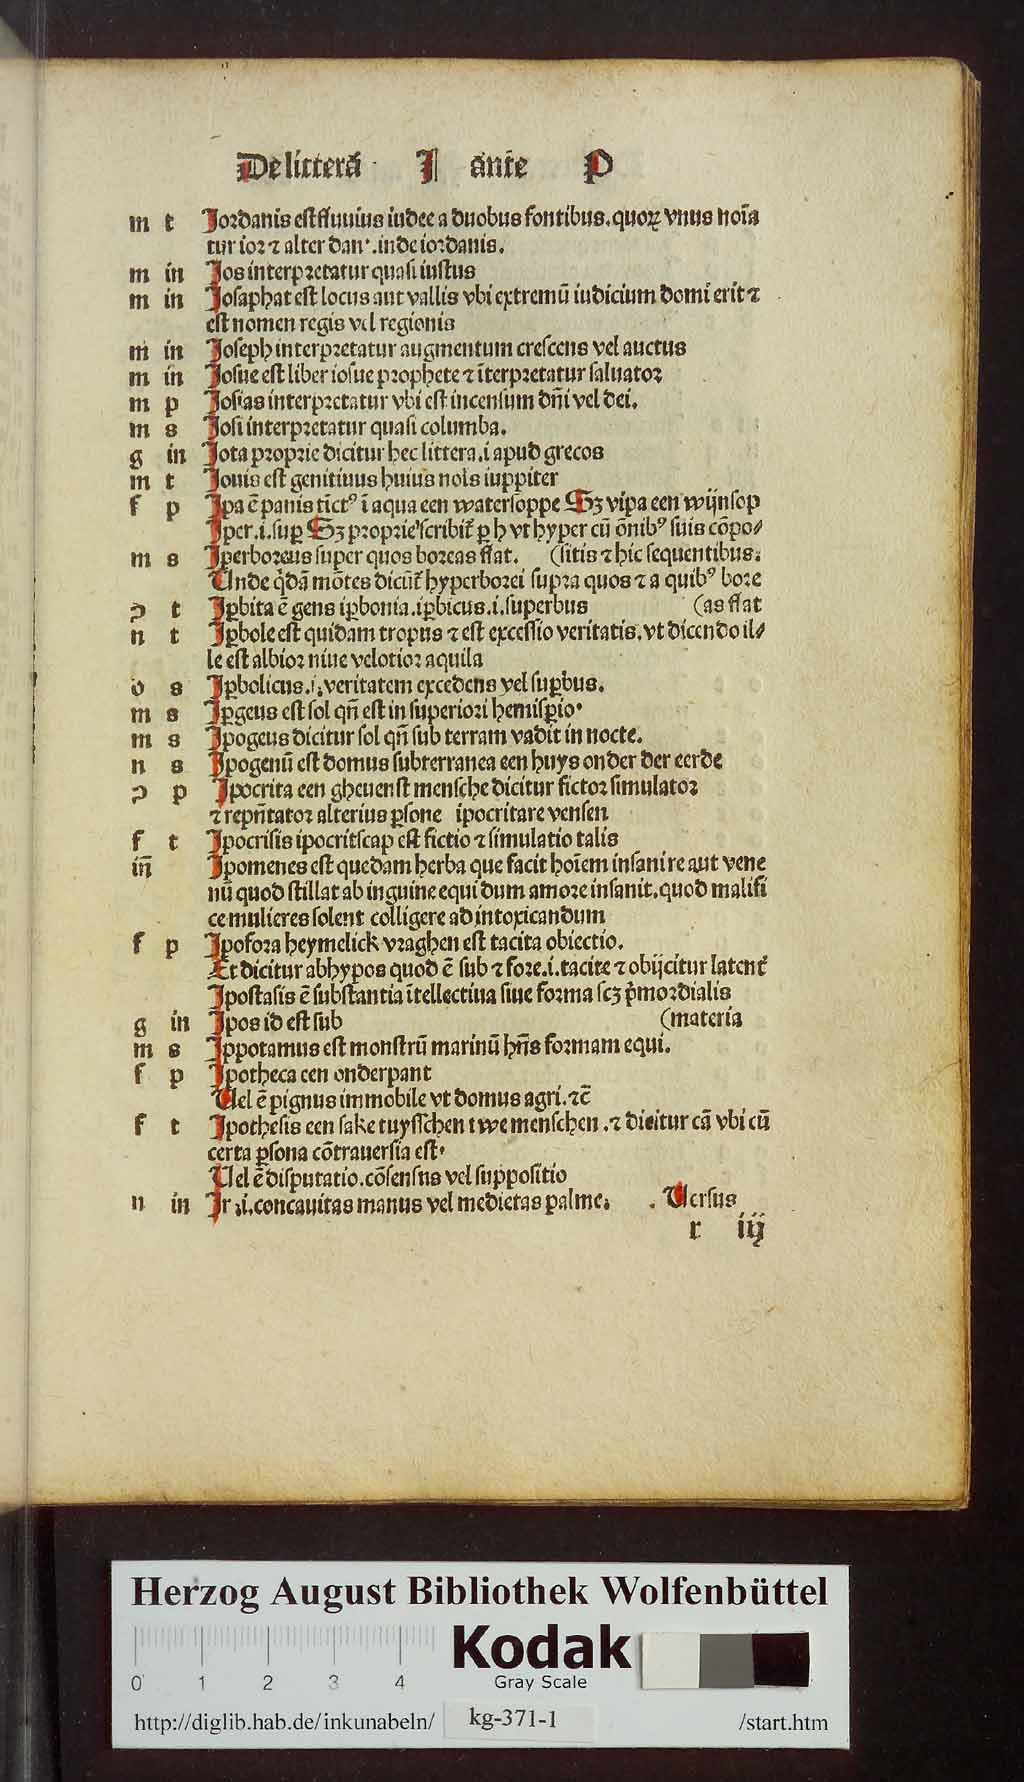 De litterā I ante P
m t Iordanis est fluuius iudee a duobus fontibus. quoꝝ vnus noīa
tur ior ⁊ alter danꝰ. inde iordanis.
m in Ios interpretatur quasi iustus
m in Iosaphat est locus aut vallis vbi extremū iudicium domi erit ⁊
est nomen regis vel regionis
m in Ioseph interpretatur augmentum crescens vel auctus
m in Iosue est liber iosue prophete ⁊ īterpretatur saluator
m p Iosias interpretatur vbi est incensum dn̄i vel dei.
m s Iosi interpretatur quasi columba.
g in Iota proprie dicitur hec littera .i apud grecos
m t Iouis est genitiuus huius nois iuppiter
f p Ipa ē panis tīctꝰ ī aqua een watersoppe Sꝫ vipa een wijnsop
Iper .i. suꝑ Sꝫ proprie scribit᷑ ꝑ h vt hyper cū ōnibꝰ suis cōpo⸗
m s Iperboreus super quos boreas flat. (sitis ⁊ hic sequentibus.
Unde q̄dā mōtes dicūt᷑ hyperborei supra quos ⁊ a quibꝰ bore
ɔ t Iꝑbita ē gens iꝑbonia. iꝑbicus .i. superbus (as flat
n t Iꝑbole est quidam tropus ⁊ est excessio veritatis. vt dicendo il⸗
le est albior niue velotior aquila
o s Iꝑbolicus .i. veritatem excedens vel suꝑbus.
m s Iꝑgeus est sol qn̄ est in superiori hemisꝑio.
m s Ipogeus dicitur sol qn̄ sub terram vadit in nocte.
n s Ipogenū est domus subterranea een huys onder der eerde
ɔ p Ipocrita een gheuenst mensche dicitur fictor simulator
⁊ repn̄tator alterius ꝑsone ipocritare vensen
f t Ipocrisis ipocritscap est fictio ⁊ simulatio talis
in̄ Ipomenes est quedam herba que facit hoīem insanire aut vene
nū quod stillat ab inguine equi dum amore insanit. quod malifi
ce mulieres solent colligere ad intoxicandum
f p Ipofora heymelick vraghen est tacita obiectio.
Et dicitur ab hypos quod ē sub ⁊ fore .i. tacite ⁊ obijcitur latent᷑
Ipostasis ē substantia ītellectiua siue forma scꝫ p̄mordialis
g in Ipos id est sub (materia
m s Ippotamus est monstrū marinū hn̄s formam equi.
f p Ipotheca een onderpant
Uel ē pignus immobile vt domus agri. ⁊c̄
f t Ipothesis een sake tuysschen twe menschen. ⁊ dicitur cā vbi cū
certa ꝑsona cōtrauersia est.
Uel ē disputatio. cōsensus vel suppositio
n in Ir .i. concauitas manus vel medietas palme. Versus
r iij
Herzog August Bibliothek Wolfenbüttel
Kodak
Gray Scale
0 1 2 3 4
http://diglib.hab.de/inkunabeln/ kg-371-1 /start.htm